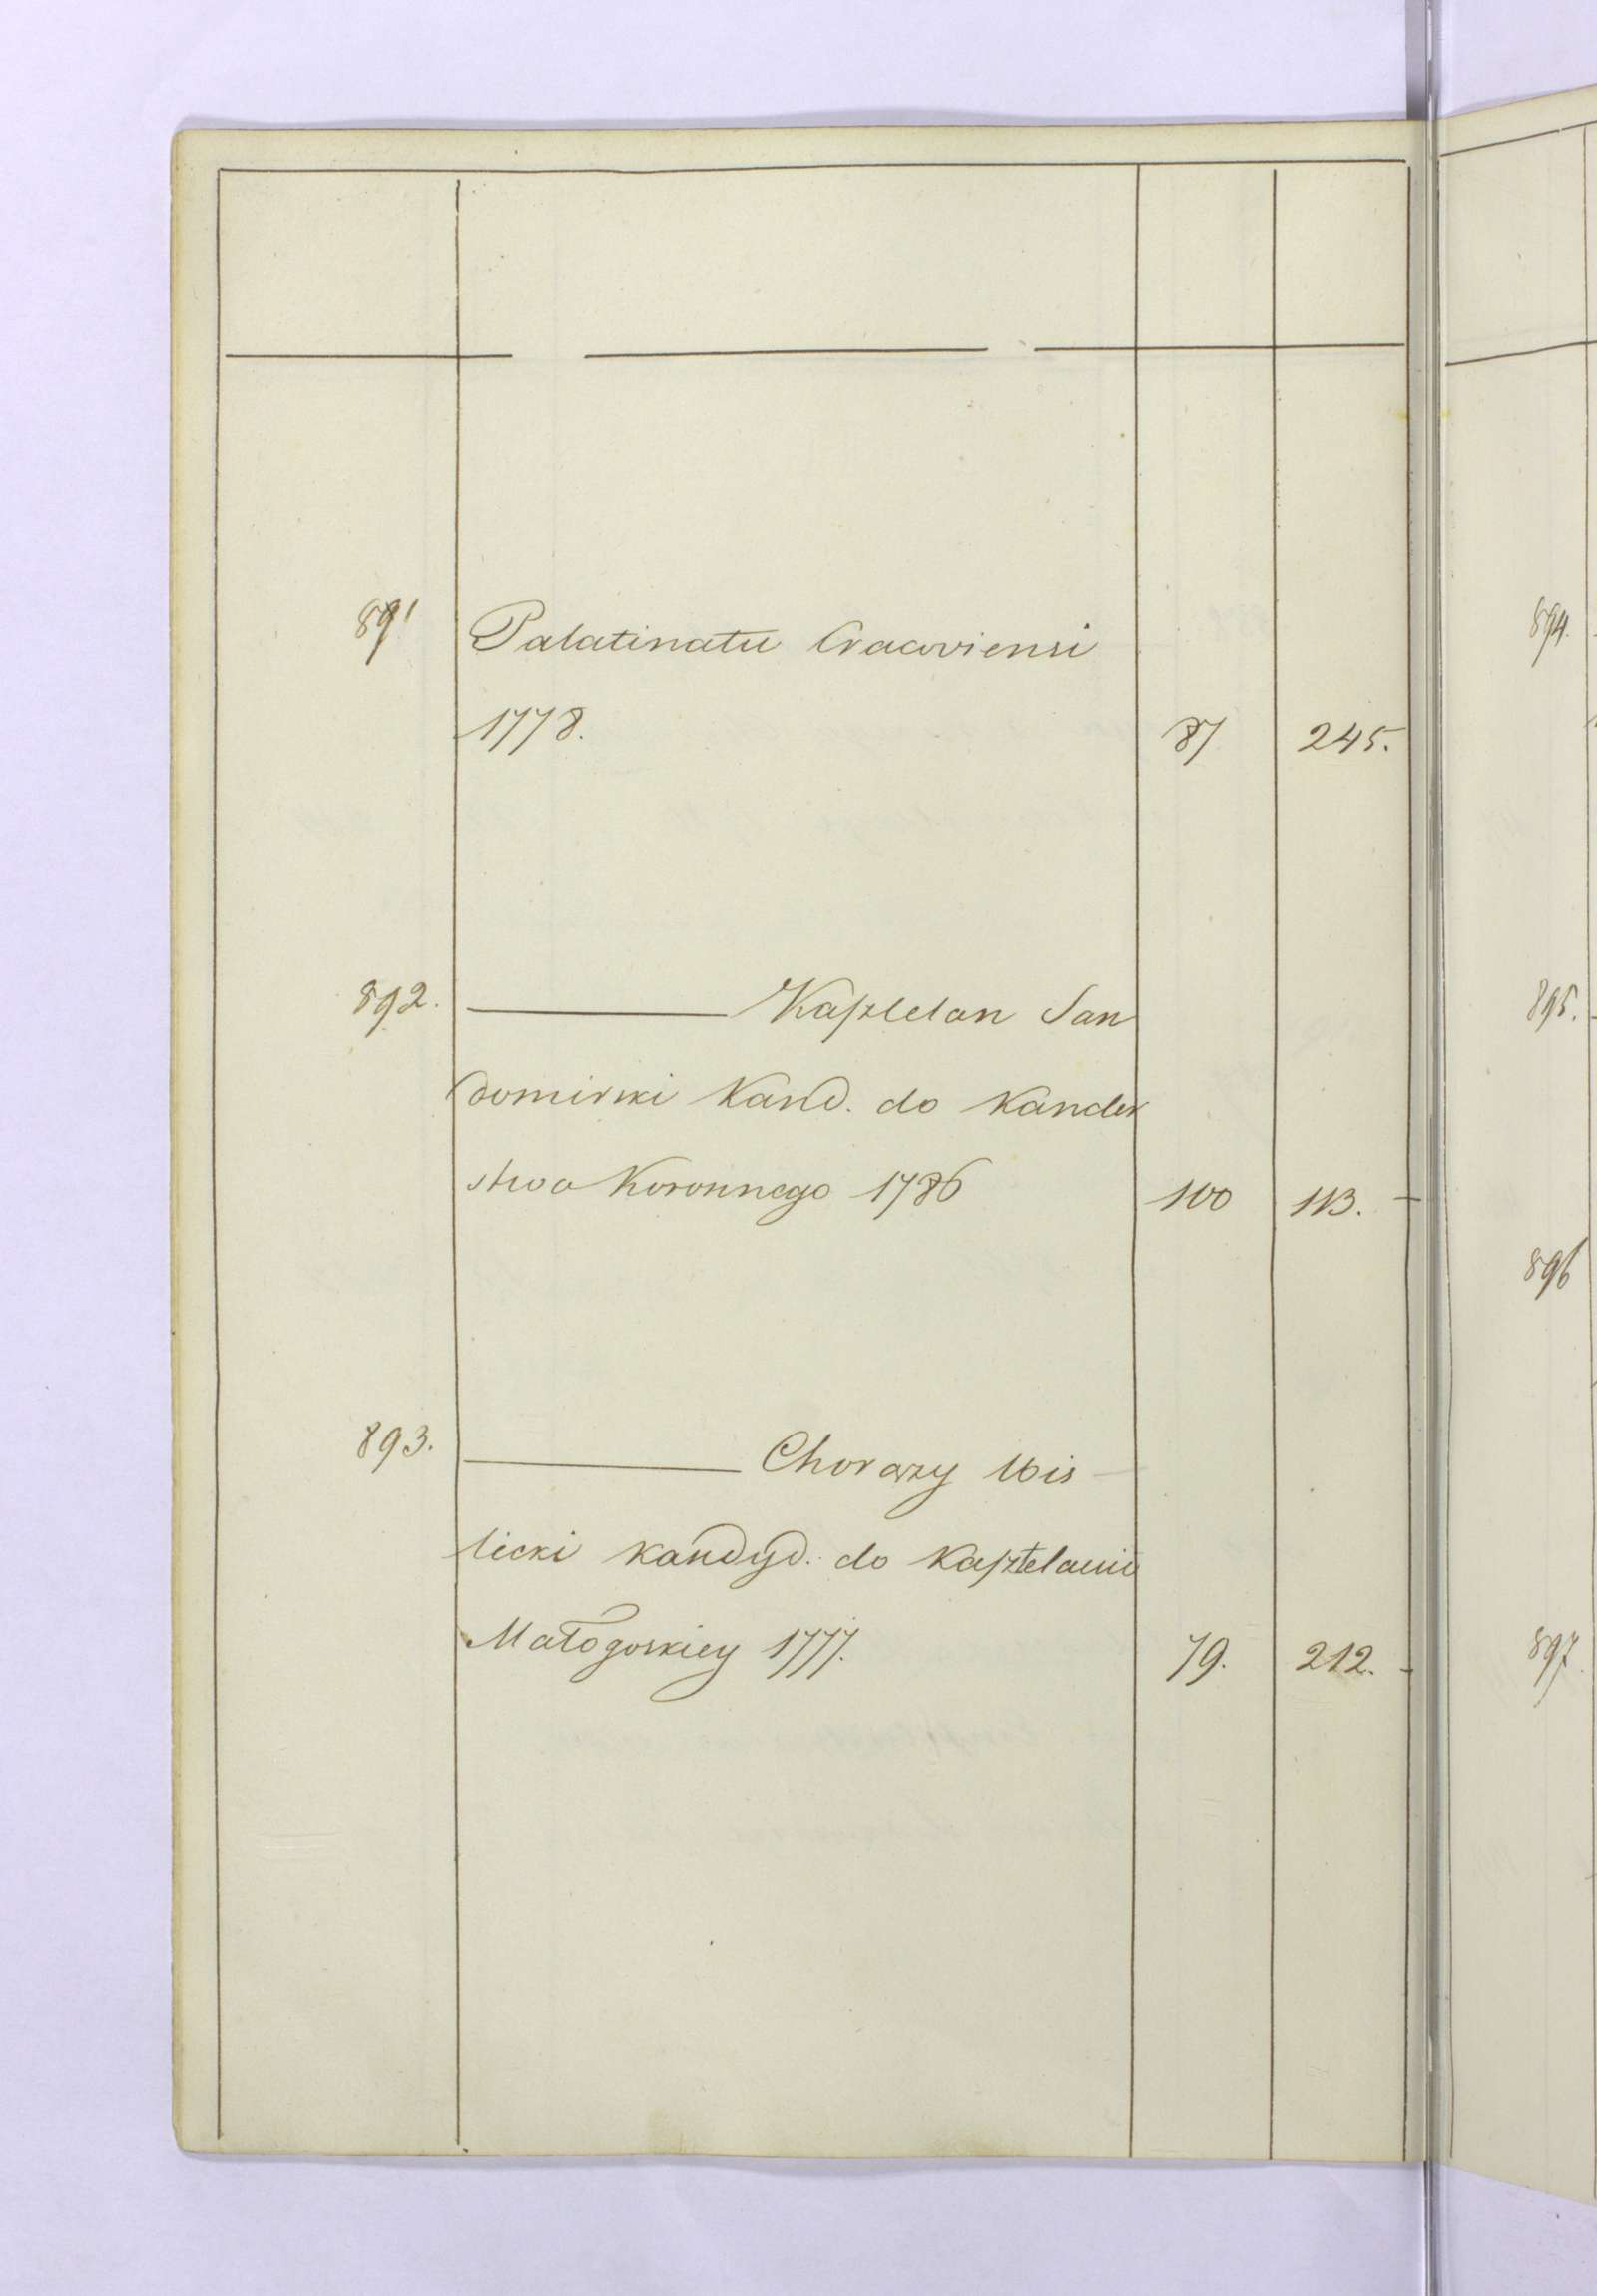 891 Palatinatu Cracoviensi
1778. 87 245.
892. Kasztelan San
domirski Kand. do Kancler
stwa Koronnego 1786 100 113.
893. Chorąży Wiś
licki kandyd. do Kasztelanii
Małogoskiey 1777. 79. 212.
894.
895.
896
897